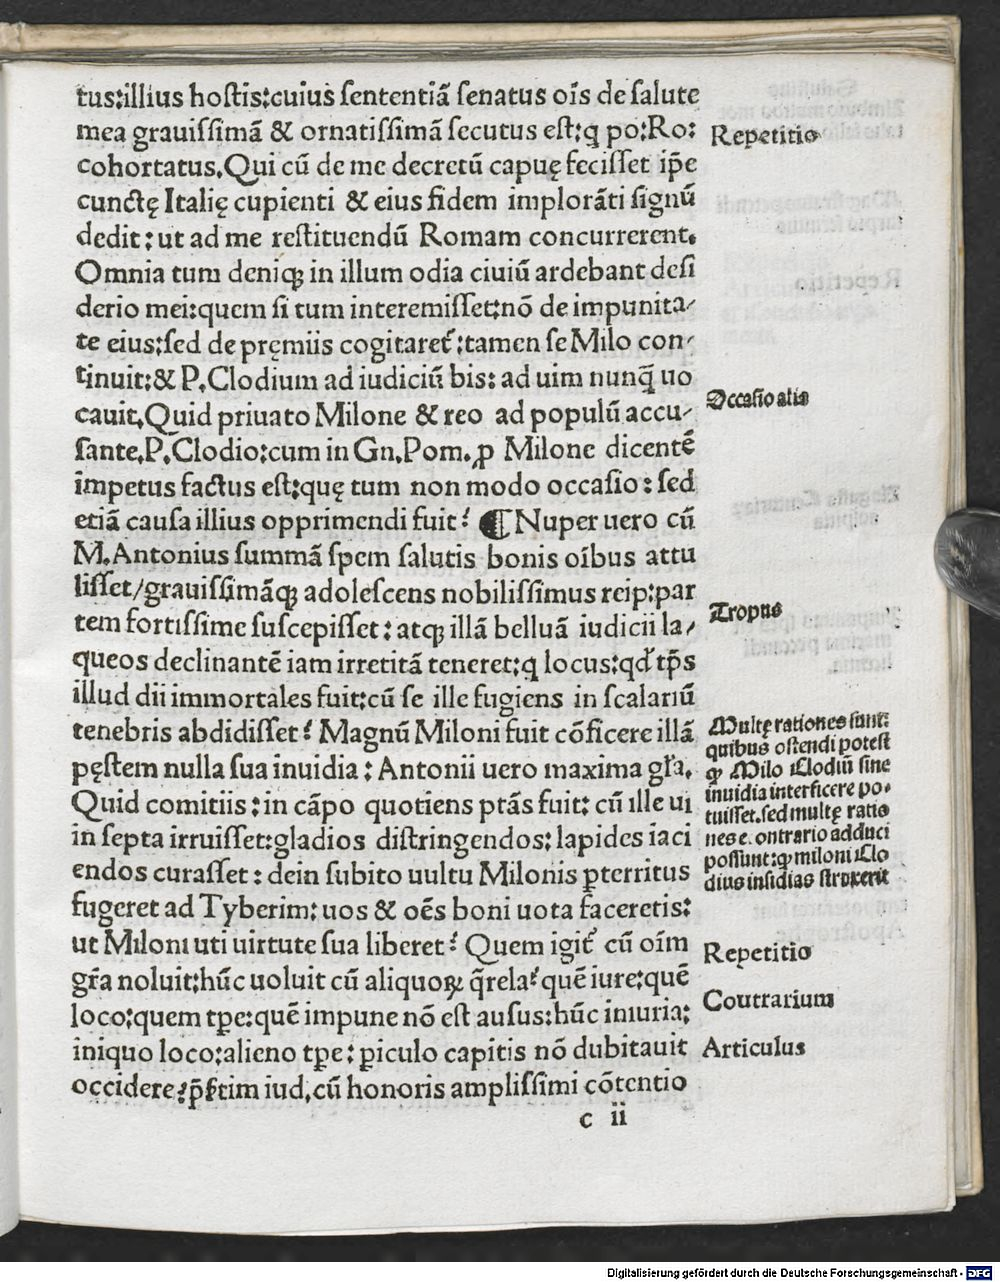 tus:illius hoſtis:cuius ſententiā ſenatus oīs de ſalute
mea grauiſſimā & ornatiſſimā ſecutus eſt:q̨ po:Ro:
cohortatus.Qui cū de me decretū capuę feciſſet ip̄e
cunctę Italię cupienti & eius fidem implorāti ſignū
dedit:ut ad me reſtituendū Romam concurrerent.
Omnia tum deniqꝫ in illum odia ciuiū ardebant deſi
derio mei:quem ſi tum interemiſſet:nō de impunita-
te eius:ſed de pręmiis cogitaret᷑:tamen ſe Milo con-
tinuit:& P.Clodium ad iudiciū bis: ad uim nunq̄ uo
cauit.Quid priuato Milone & reo ad populū accu-
ſante.P.Clodio:cum in Gn.Pom.ꝓ Milone dicentē
impetus factus eſt:quę tum non modo occaſio: ſed
etiā cauſa illius opprimendi fuit? ¶Nuper uero cū
M.Antonius ſummā ſpem ſalutis bonis oībus attu
liſſet/grauiſſimāqꝫ adoleſcens nobiliſſimus reip:par
tem fortiſſime ſuſcepiſſet: atqꝫ illā belluā iudicii la-
queos declinantē iam irretitā teneret:q locus:qd᷑ tp̄s
illud dii immortales fuit:cū ſe ille fugiens in ſcalariū
tenebris abdidiſſet? Magnū Miloni fuit cōficere illā
pęſtem nulla ſua inuidia: Antonii uero maxima gl̄a.
Quid comitiis: in cāpo quotiens ptās fuit: cū ille ui
in ſepta irruiſſet:gladios diſtringendos: lapides iaci
endos curaſſet: dein ſubito uultu Milonis ꝑterritus
fugeret ad Tyberim: uos & oēs boni uota faceretis:
ut Miloni uti uirtute ſua liberet? Quem igit᷑ cū oīm
gr̄a noluit:hūc uoluit cū aliquoꝝ q̄rela?quē iure:quē
loco:quem tꝑe:quē impune nō eſt auſus:hūc iniuria:
iniquo loco:alieno tꝑe: ꝑiculo capitis nō dubitauit
occidere?p̄ſtim iud,cū honoris ampliſſimi cōtentio
c ii
Repetitio
Occaſio alia
Tropus
Multę rationes ſunt:
quibus oſtendi poteſt
ꝙ Milo Clodiū ſine
inuidia interficere po-
tuiſſet.ſed multę ratio
nes e. ontrario adduci
poſſunt:ꝙ miloni Clo
dius inſidias ſtruxerit
Repetitio
Coutrarium
Articulus
Digitalisierung gefördert durch die Deutsche Forschungsgemeinschaft - DFG